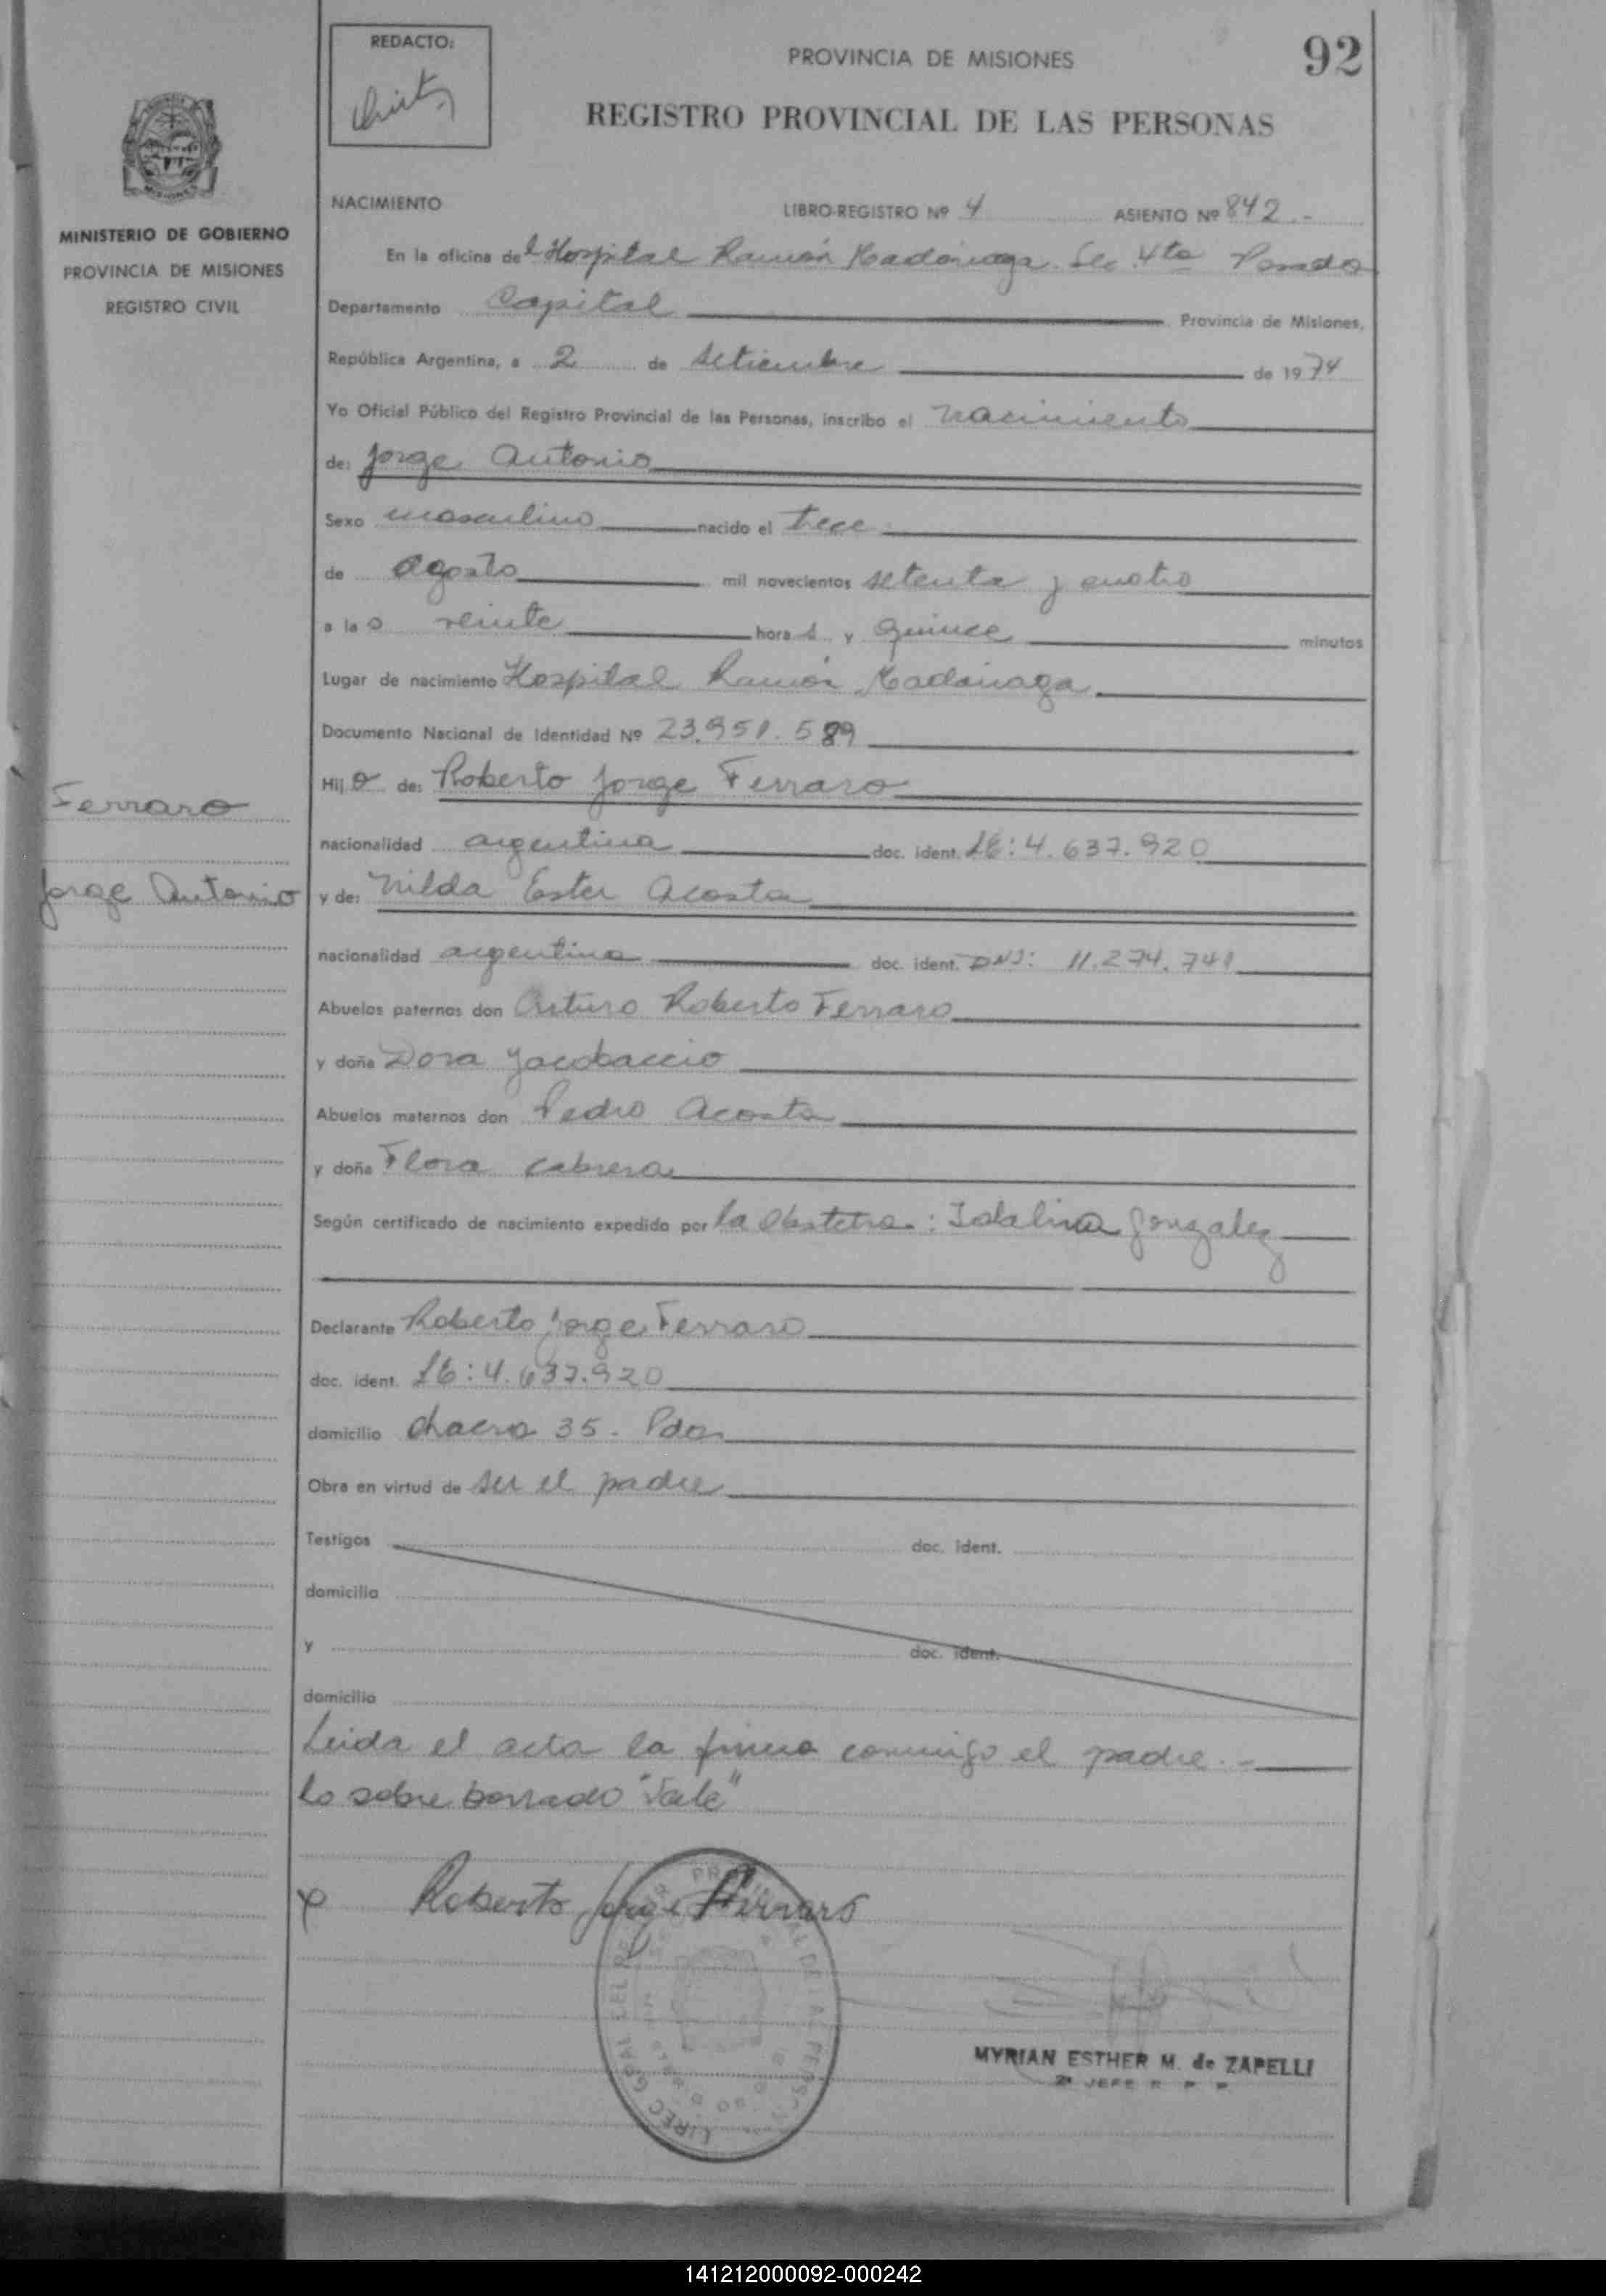 REDACTO:
PROVINCIA DE MISIONES
92
REGISTRO PROVINCIAL DE LAS PERSONAS
MISIONES
MINISTERIO DE GOBIERNO
PROVINCIA DE MISIONES
REGISTRO CIVIL
NACIMIENTO LIBRO-REGISTRO Nº 4 ASIENTO Nº 842.-
En la oficina del Hospital Ramón Madariaga. Sec 4ta Posadas
Departamento Capital Provincia de Misiones,
República Argentina, a 2 de setiembre de 1974
Yo Oficial Público del Registro Provincial de las Personas, inscribo el nacimiento
de: Jorge Antonio
Sexo masculino nacido el trece
de agosto mil novecientos setenta y cuatro
a las veinte horas y quince minutos
Lugar de nacimiento Hospital Ramón Madariaga
Documento Nacional de Identidad Nº 23.951.589
Hijo de: Roberto Jorge Ferraro
Ferraro
nacionalidad argentina doc. ident. LE: 4.637.920
Jorge Antonio
y de: Nilda Ester Acosta
nacionalidad argentina doc. ident. DNI: 11.274.741
Abuelos paternos don Arturo Roberto Ferraro
y doña Dora Jacobaccio
Abuelos maternos don Pedro Acosta
y doña Flora Cabrera
Según certificado de nacimiento expedido por la Obstetra: Idalina Gonzalez
Declarante Roberto Jorge Ferraro
doc. ident. LE: 4.637.920
domicilio Chacra 35. Pdas
Obra en virtud de ser el padre
Testigos doc. ident.
domicilio
y doc. ident.
domicilio
Leida el acta la firma conmigo el padre.-
lo sobre borrado "Vale"
Roberto Jorge Ferraro
MYRIAN ESTHER M. de ZAPELLI
2º JEFE R P P
141212000092-000242